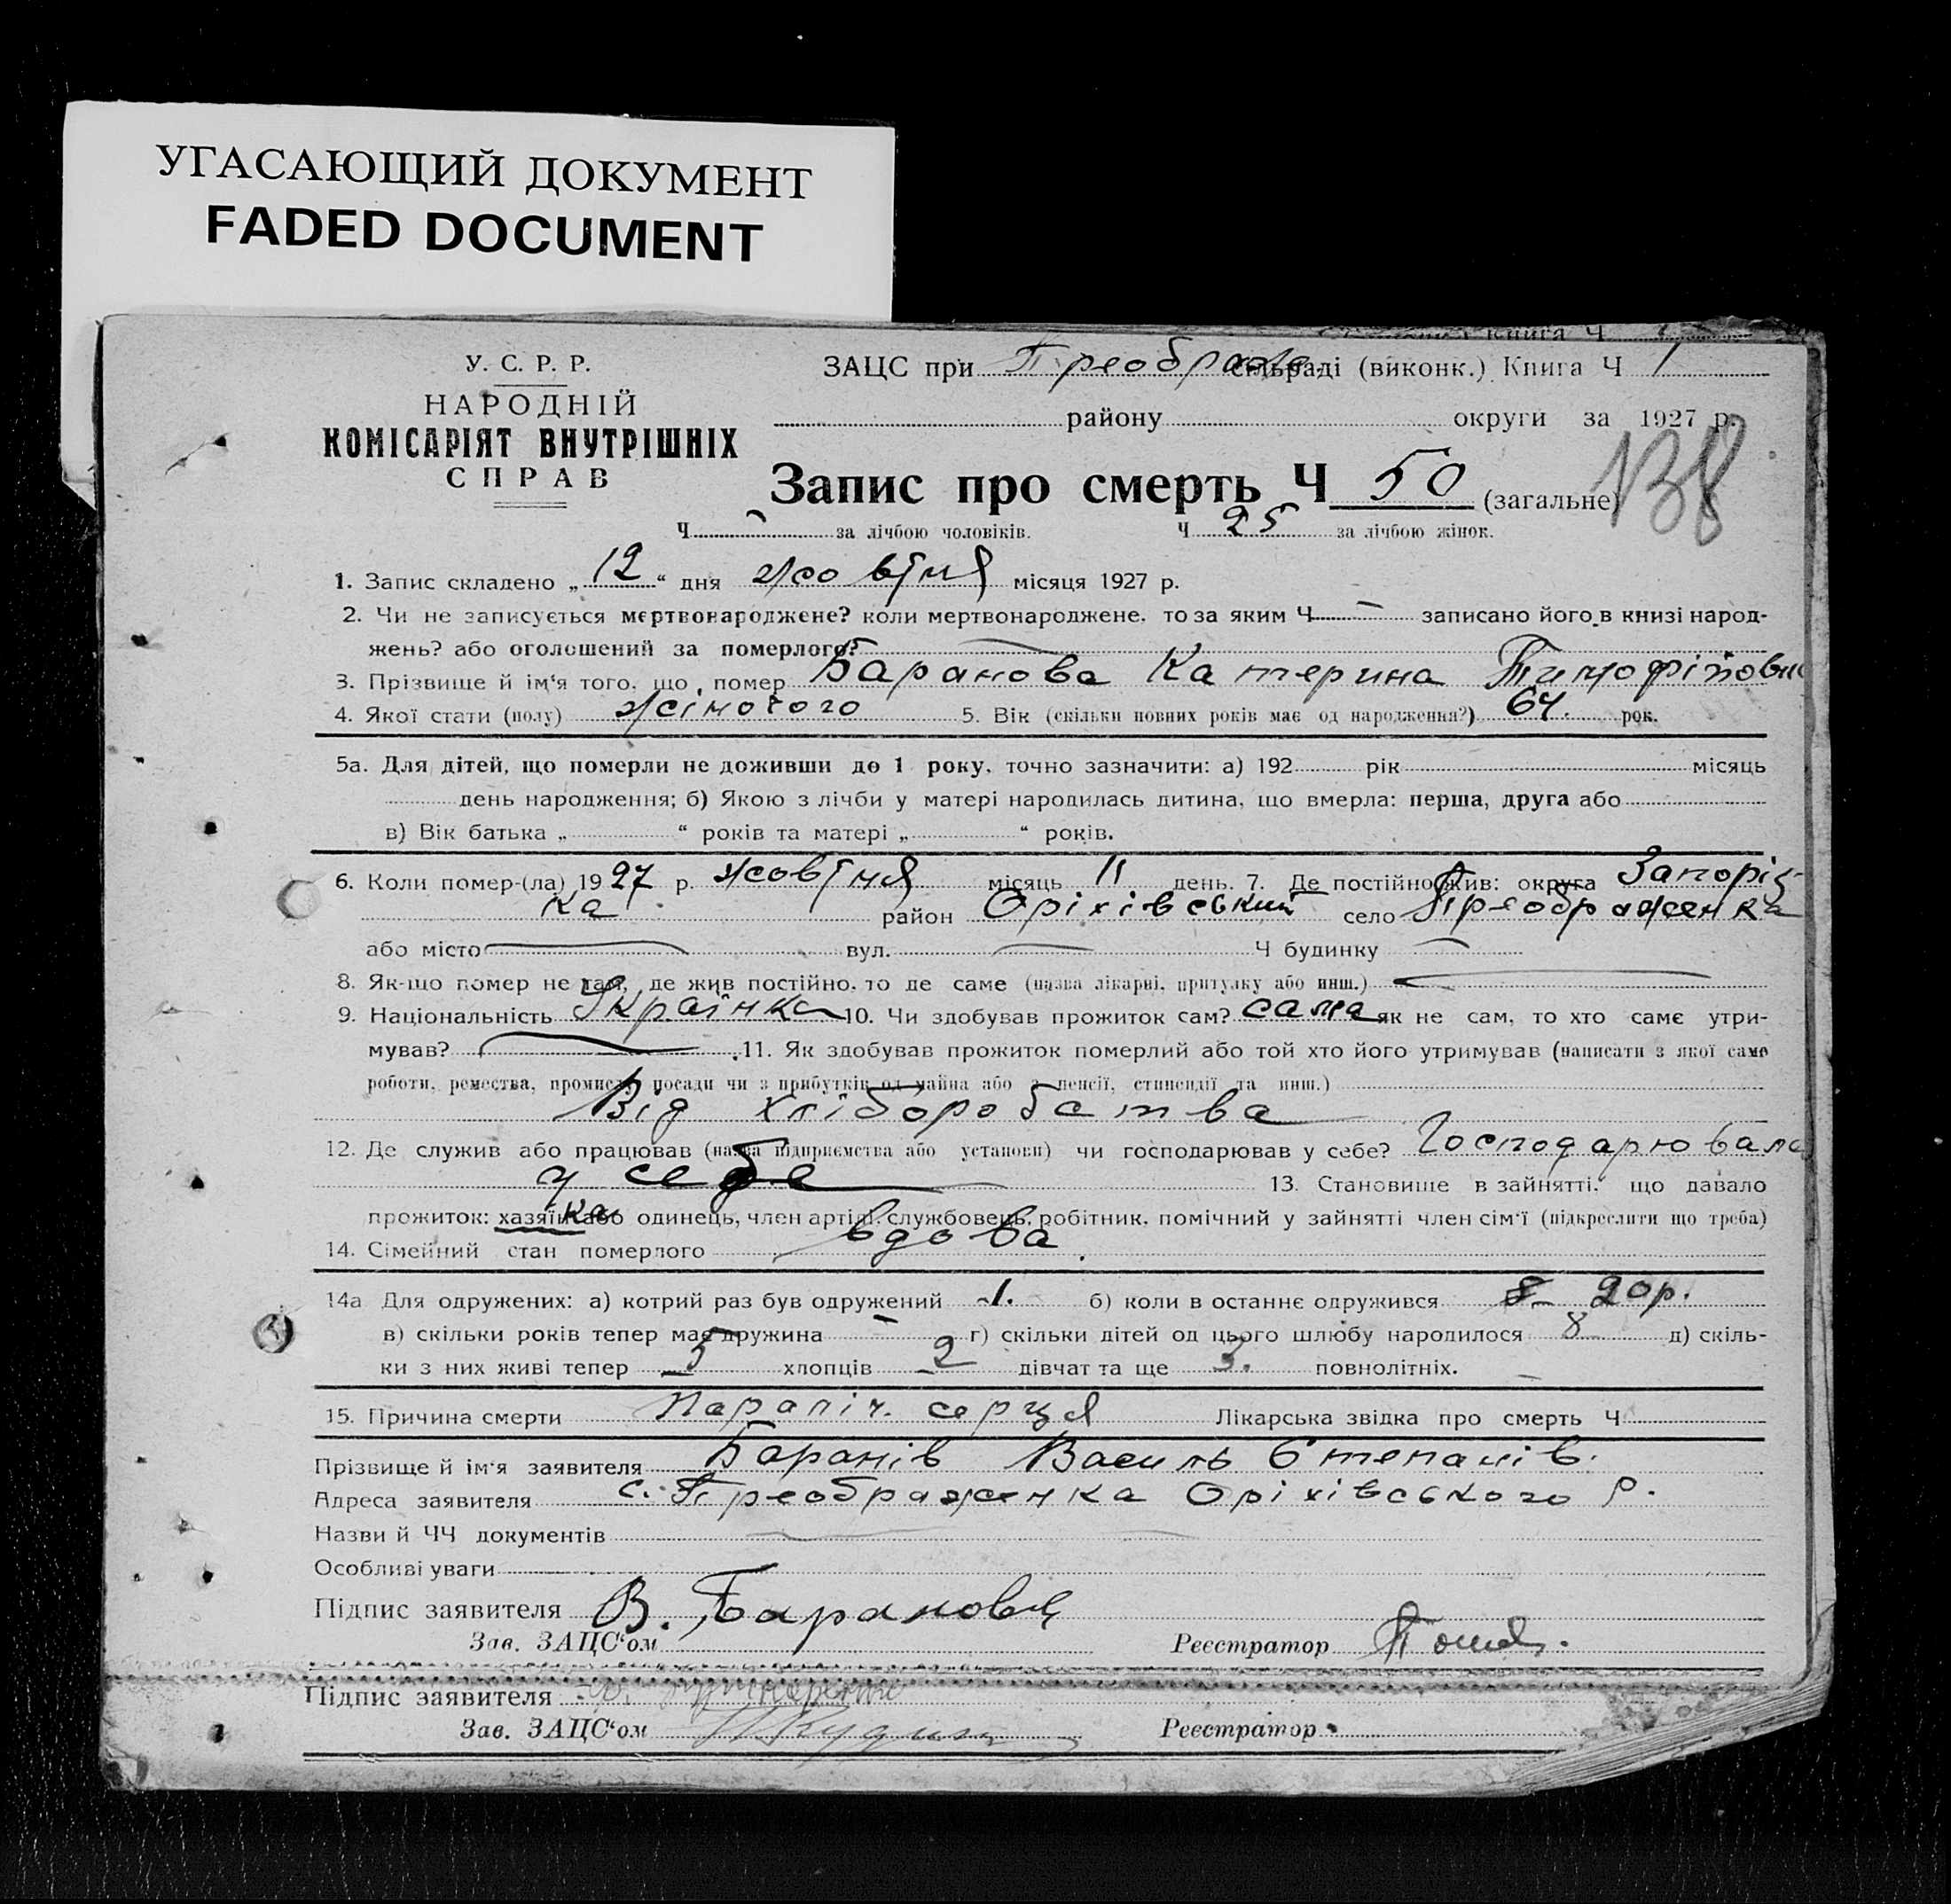 УГАСАЮЩИЙ ДОКУМЕНТ
FADED DOCUMENT
Книга Ч
У. С. Р. Р.
НАРОДНІЙ
КОМІСАРІЯТ ВНУТРІШНІХ
СПРАВ
ЗАЦС при Преображен. сільраді (виконк.) Книга Ч 1
району округи за 1927 р.
138
Запис про смерть Ч 50 (загальне)
Ч – за лічбою чоловіків. Ч 25 за лічбою жінок.
1. Запис складено „ 12 “ дня жовтня місяця 1927 р.
2. Чи не записується мертвонароджене? коли мертвонароджене, то за яким Ч – записано його в книзі народ-
жень? або оголошений за померлого?
3. Прізвище й ім'я того, що помер Баранова Катерина Тимофіїовна
4. Якої стати (полу) жіночого 5. Вік (скільки повних років має од народження?) 64. рок.
5а. Для дітей, що померли не доживши до 1 року, точно зазначити: а) 192 рік місяць
день народження; б) Якою з лічби у матері народилась дитина, що вмерла: перша, друга або
в) Вік батька „ “ років та матері „ “ років.
6. Коли помер-(ла) 1927 р. жовтня місяць 11 день. 7. Де постійно жив: округа Запоріз-
ка район Оріхівський село Преображенка
або місто вул. Ч будинку
8. Як-що помер не там, де жив постійно, то де саме (назва лікарні, притулку або инш.)
9. Національність Українка 10. Чи здобував прожиток сам? сама як не сам, то хто саме утри-
мував? 11. Як здобував прожиток померлий або той хто його утримував (написати з якої само
роботи, ремества, промислу, посади чи з прибутків од майна або з пенсії, стипендії та инш.)
Від хліборобства
12. Де служив або працював (назва підприємства або установи) чи господарював у себе? Господарювала
у себе 13. Становище в зайнятті, що давало
прожиток: хазяїнка або одинець, член артілі, службовець, робітник, помічний у зайнятті член сім'ї (підкреслити що треба)
14. Сімейний стан померлого вдова
14а Для одружених: а) котрий раз був одружений 1. б) коли в останнє одружився 20р.
в) скільки років тепер має дружина – г) скільки дітей од цього шлюбу народилося 8 д) скіль-
ки з них живі тепер 5 хлопців 2 дівчат та ще 3. повнолітніх.
15. Причина смерти Параліч. серця Лікарська звідка про смерть Ч
Прізвище й ім'я заявителя Баранів Василь Степанів.
Адреса заявителя с. Преображенка Оріхівського р.
Назви й ЧЧ документів
Особливі уваги
Підпис заявителя В. Барановец
Зав. ЗАЦС‘ом Реєстратор
Підпис заявителя
Зав. ЗАЦС‘ом Реєстратор